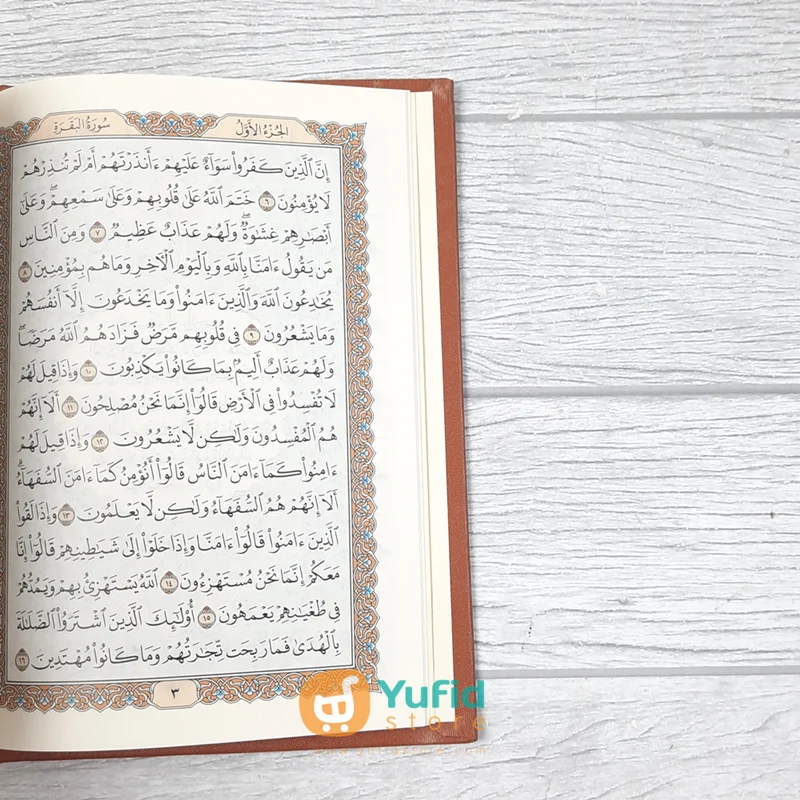 الجزء الأول
سورة البقرة
إِنَّ ٱلَّذِينَ كَفَرُوا۟ سَوَآءٌ عَلَيْهِمْ ءَأَنذَرْتَهُمْ أَمْ لَمْ تُنذِرْهُمْ
لَا يُؤْمِنُونَ ٦ خَتَمَ ٱللَّهُ عَلَىٰ قُلُوبِهِمْ وَعَلَىٰ سَمْعِهِمْ ۖ وَعَلَىٰٓ
أَبْصَٰرِهِمْ غِشَٰوَةٌ ۖ وَلَهُمْ عَذَابٌ عَظِيمٌ ٧ وَمِنَ ٱلنَّاسِ
مَن يَقُولُ ءَامَنَّا بِٱللَّهِ وَبِٱلْيَوْمِ ٱلْءَاخِرِ وَمَا هُم بِمُؤْمِنِينَ ٨
يُخَٰدِعُونَ ٱللَّهَ وَٱلَّذِينَ ءَامَنُوا۟ وَمَا يَخْدَعُونَ إِلَّآ أَنفُسَهُمْ
وَمَا يَشْعُرُونَ ٩ فِى قُلُوبِهِم مَّرَضٌ فَزَادَهُمُ ٱللَّهُ مَرَضًا ۖ
وَلَهُمْ عَذَابٌ أَلِيمٌۢ بِمَا كَانُوا۟ يَكْذِبُونَ ١٠ وَإِذَا قِيلَ لَهُمْ
لَا تُفْسِدُوا۟ فِى ٱلْأَرْضِ قَالُوٓا۟ إِنَّمَا نَحْنُ مُصْلِحُونَ ١١ أَلَآ إِنَّهُمْ
هُمُ ٱلْمُفْسِدُونَ وَلَٰكِن لَّا يَشْعُرُونَ ١٢ وَإِذَا قِيلَ لَهُمْ
ءَامِنُوا۟ كَمَآ ءَامَنَ ٱلنَّاسُ قَالُوٓا۟ أَنُؤْمِنُ كَمَآ ءَامَنَ ٱلسُّفَهَآءُ ۗ
أَلَآ إِنَّهُمْ هُمُ ٱلسُّفَهَآءُ وَلَٰكِن لَّا يَعْلَمُونَ ١٣ وَإِذَا لَقُوا۟
ٱلَّذِينَ ءَامَنُوا۟ قَالُوٓا۟ ءَامَنَّا وَإِذَا خَلَوْا۟ إِلَىٰ شَيَٰطِينِهِمْ قَالُوٓا۟ إِنَّا
مَعَكُمْ إِنَّمَا نَحْنُ مُسْتَهْزِءُونَ ١٤ ٱللَّهُ يَسْتَهْزِئُ بِهِمْ وَيَمُدُّهُمْ
فِى طُغْيَٰنِهِمْ يَعْمَهُونَ ١٥ أُو۟لَٰٓئِكَ ٱلَّذِينَ ٱشْتَرَوُا۟ ٱلضَّلَٰلَةَ
بِٱلْهُدَىٰ فَمَا رَبِحَت تِّجَٰرَتُهُمْ وَمَا كَانُوا۟ مُهْتَدِينَ ١٦
٣
Yufid
store